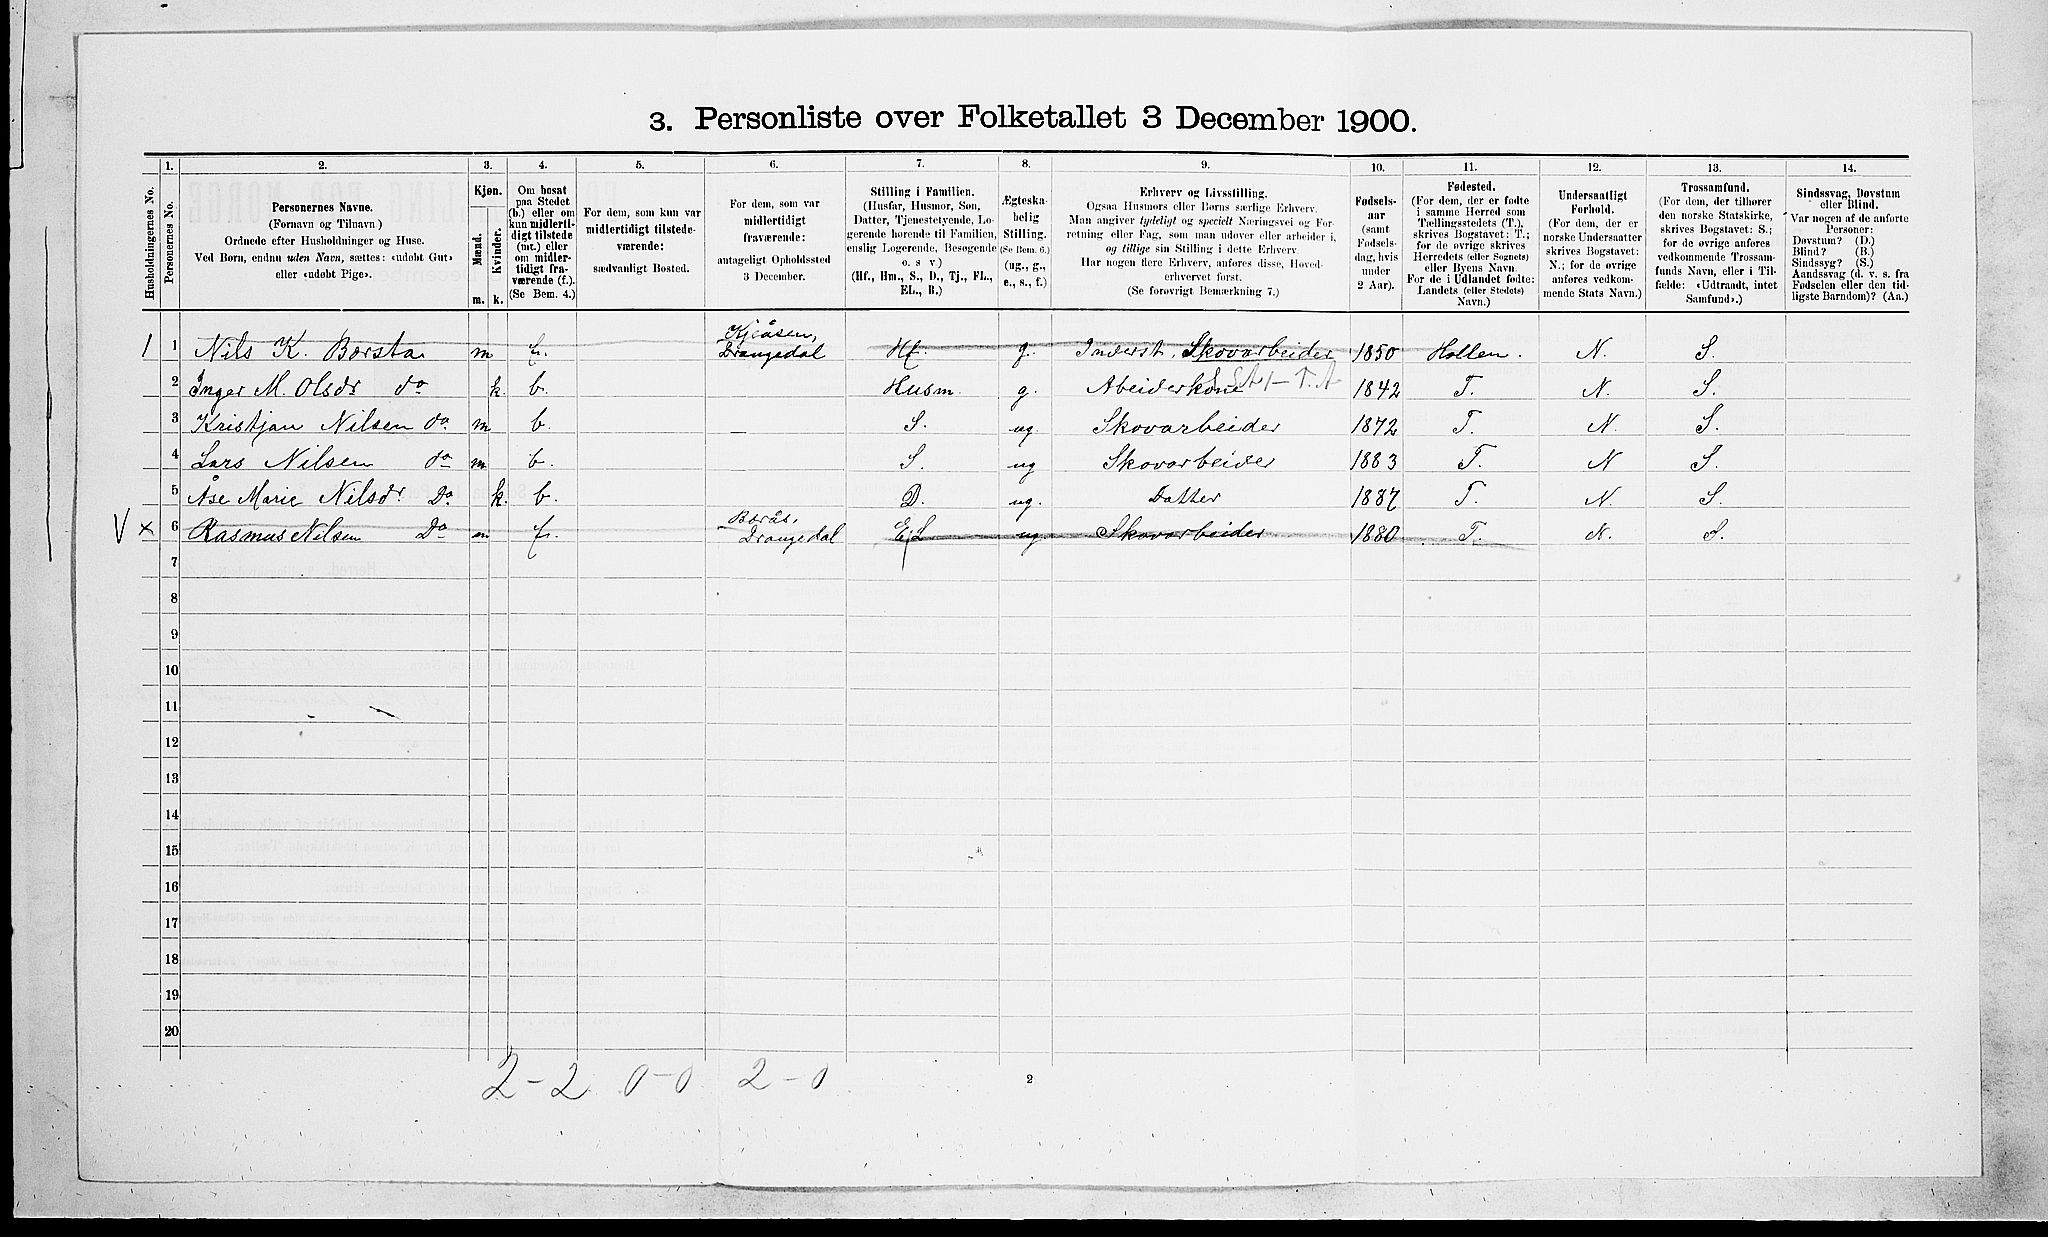 3. Personliste over Folketallet 3 December 1900.
Husholdningernes No.
1.
Personernes No.
2.
Personernes Navne.
(Fornavn og Tilnavn)
Ordnede efter Husholdninger og Huse.
Ved Børn, endnu uden Navn, sættes: «udøbt Gut»
eller «udøbt Pige».
3.
Kjøn.
Mænd.
m.
Kvinder.
k.
4.
Om bosat
paa Stedet
(b.) eller om
kun midlerti-
digt tilstede
(mt.) eller
om midler-
tidigt fra-
værende (f.).
(Se Bem. 4.)
5.
For dem, som kun var
midlertidigt tilstede-
værende:
sædvanligt Bosted.
6.
For dem, som var
midlertidigt
fraværende:
antageligt Opholdssted
3 December.
7.
Stilling i Familien.
(Husfar, Husmor, Søn,
Datter, Tjenestetyende, Lo-
gerende hørende til Familien,
enslig Logerende, Besøgende
o. s v)
(Hf., Hm., S., D., Tj., FL.,
EL., B.)
8.
Ægteska-
belig
Stilling.
(Se Bem. 6.)
(ug., g.,
e., s., f.)
9.
Erhverv og Livsstilling.
Ogsaa Husmors eller Børns særlige Erhverv.
Man angiver tydeligt og specielt Næringsvei og For-
retning eller Fag, som man udøver eller arbeider i,
og tillige sin Stilling i dette Erhverv.
Har nogen flere Erhverv, anføres disse, Hoved-
erhvervet først.
(Se forøvrigt Bemærkning 7.)
10.
Fødsels-
aar
(samt
Fødsels-
dag, hvis
under
2 Aar).
11.
Fødested.
(For dem, der er fødte
i samme Herred som
Tællingsstedets (T.),
skrives Bogstavet: T.;
for de øvrige skrives
Herredets (eller Sognets)
eller Byens Navn.
For de i Udlandet fødte:
Landets (eller Stedets)
Navn.)
12.
Undersaatligt
Forhold.
(For dem, der er
norske Undersaatter
skrives Bogstavet:
N.; for de øvrige
anføres vedkom-
mende Stats Navn.)
13.
Trossamfund.
(For dem, der tilhører
den norske Statskirke,
skrives Bogstavet: S.;
for de øvrige anføres
vedkommende Trossam-
funds Navn, eller i Til-
fælde: «Udtraadt, intet
Samfund».)
14.
Sindssvag, Døvstum
eller Blind.
Var nogen af de anførte
Personer:
Døvstum? (D.)
Blind? (B.)
Sindssyg? (S.)
Aandssvag (d. v. s. fra
Fødselen eller den tid-
ligste Barndom)? (Aa.)
1 1 Nils K. Borsta m f. Kjeåsen, Drangedal Hf. g. Inderst, Skovarbeider 1850 Hollen. N. S.
2 Inger M. Olsdr do k. b. Husm. g. Abeiderkone 1842 T. N. S.
3 Kristjan Nilsen do m b. — S. ug. Skovarbeider 1872 T. N. S.
4 Lars Nilsen do m b. S. ug Skovarbeider 1883 T. N S.
5 Åse Marie Nilsdr. Do k. b. D. ug. Datter 1887 T. N. S.
V × 6 Rasmus Nilsen Do m f. Borås, Drangedal EL ug. Skovarbeider 1880 T. N. S.
7
8
9
10
11
12
13
14
15
16
17
18
19
20
2-2 0-0 2-0
2